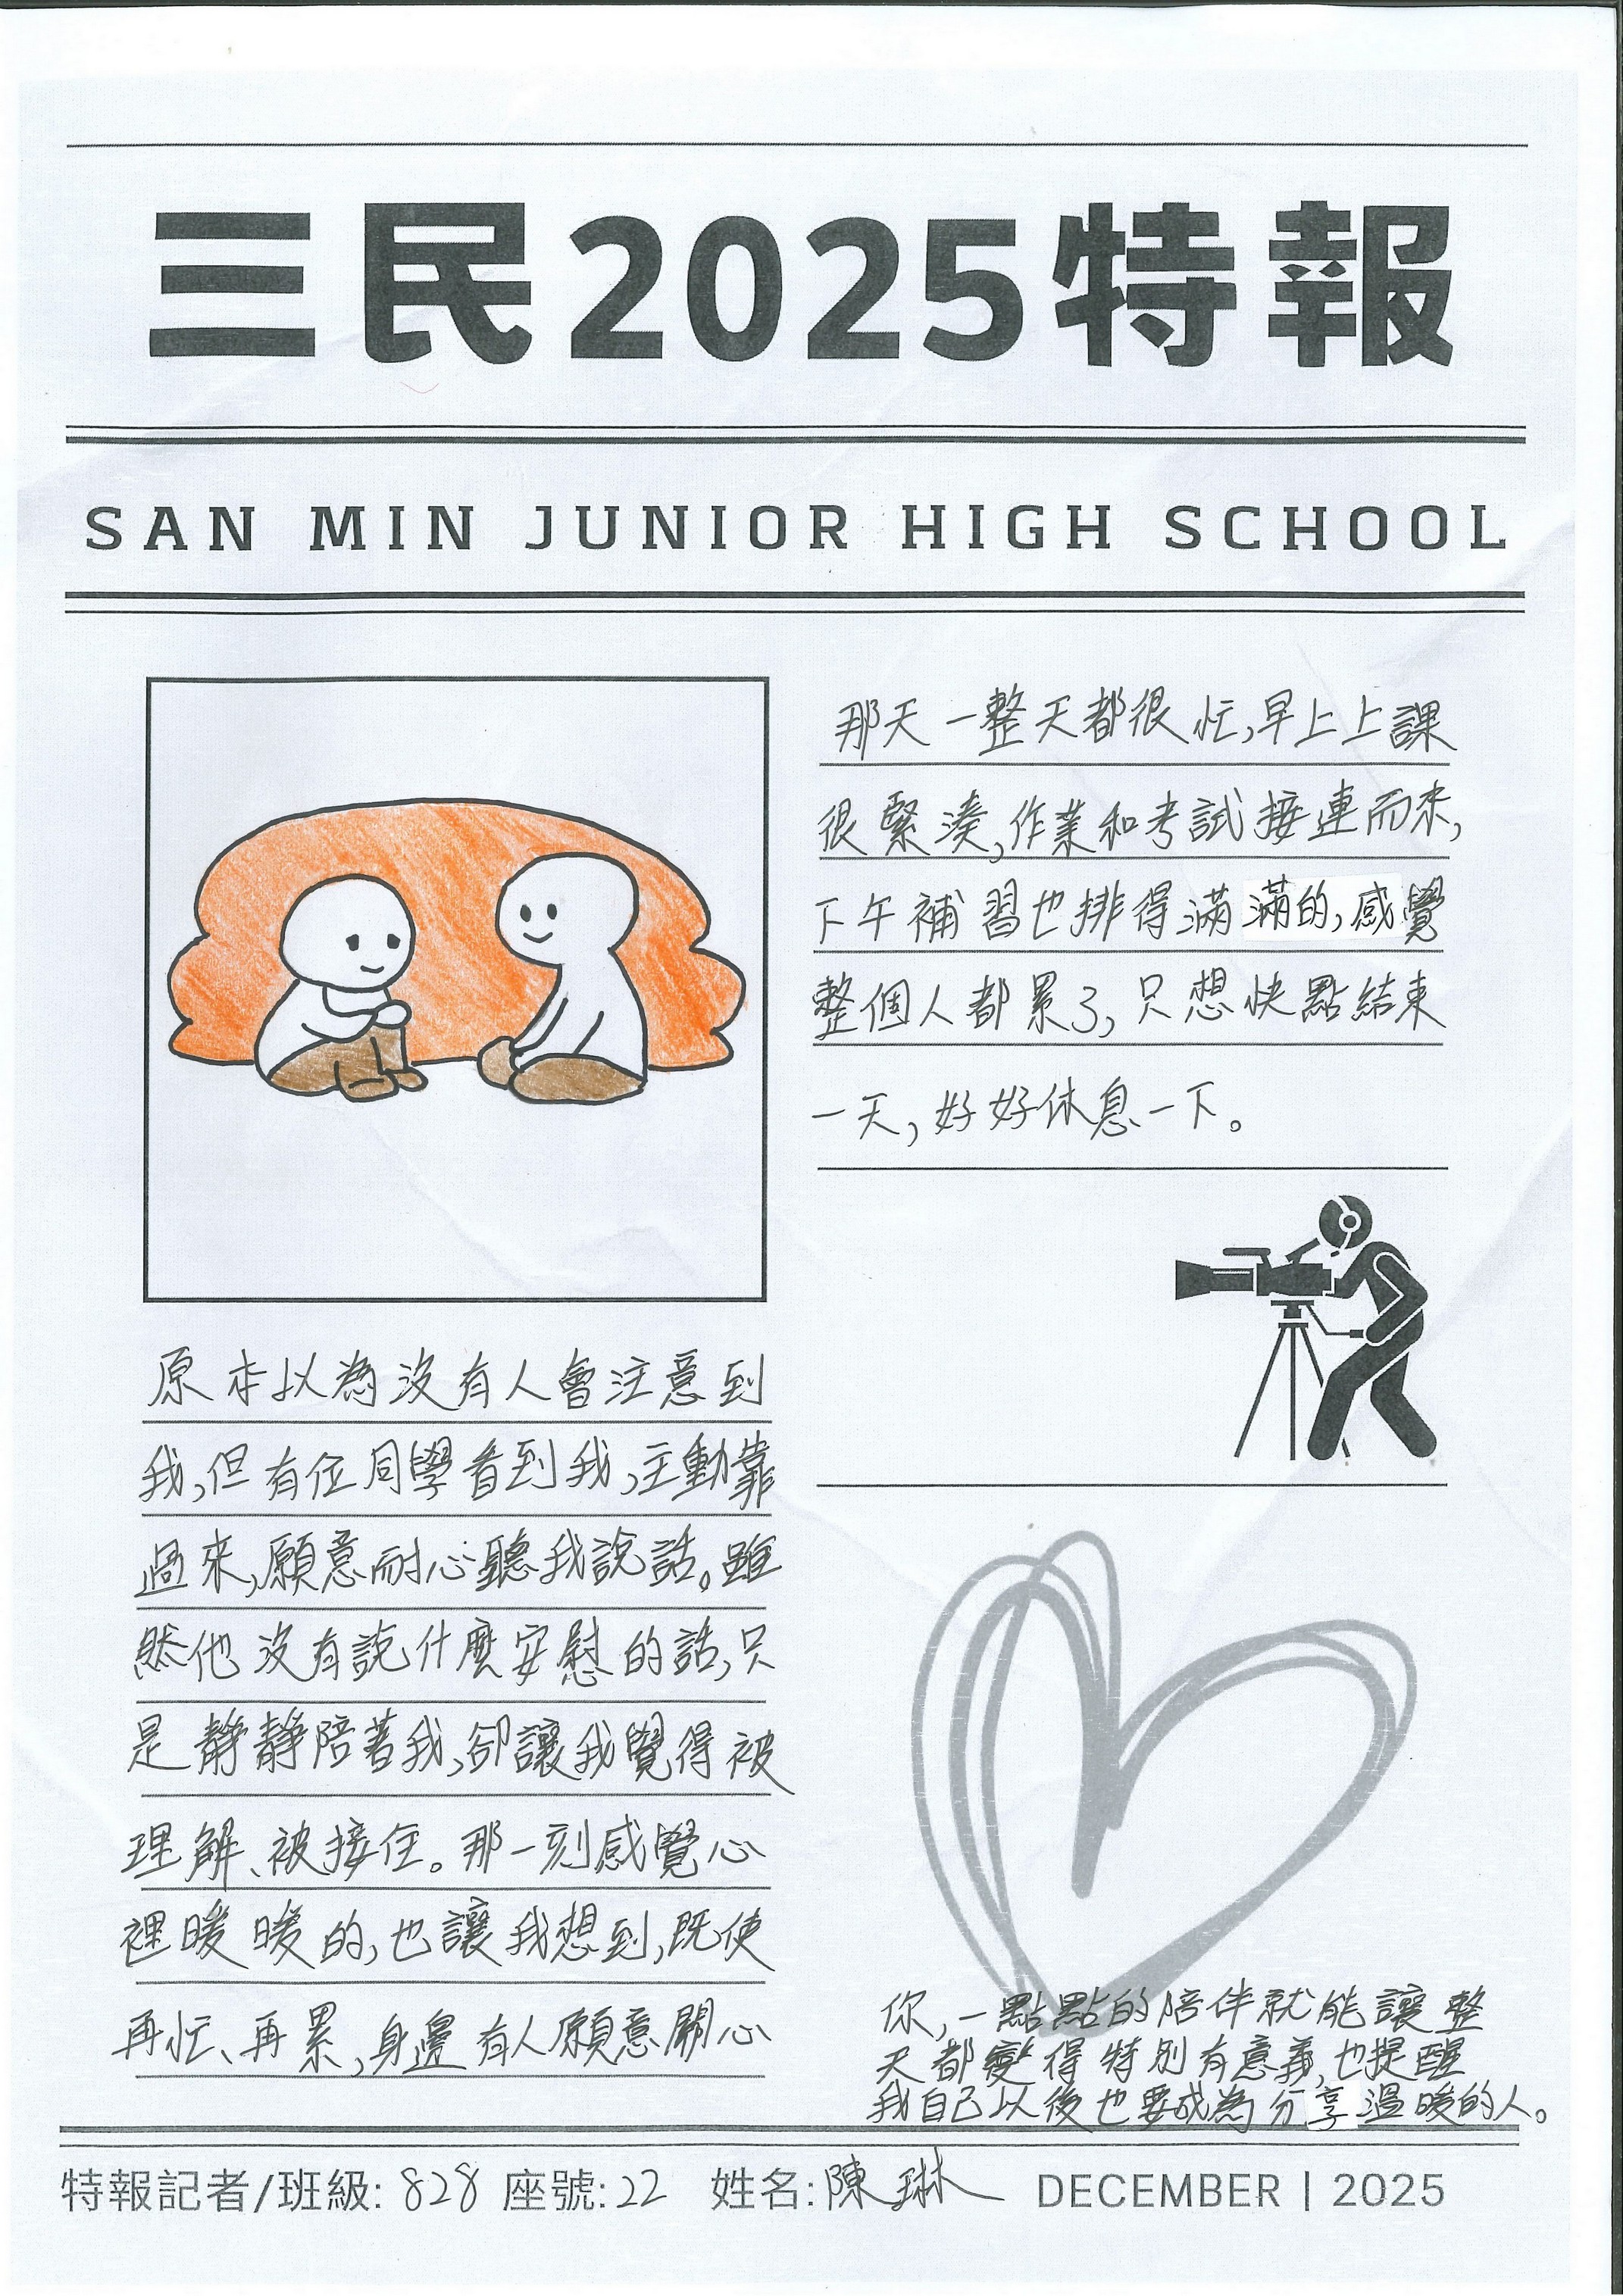 三民2025特報
SAN MIN JUNIOR HIGH SCHOOL
那天一整天都很忙,早上上課
很緊湊,作業和考試接連而來,
下午補習也排得滿滿的,感覺
整個人都累了,只想快點結束
一天,好好休息一下。
原本以為沒有人會注意到
我,但有位同學看到我,主動靠
過來,願意耐心聽我說話。雖
然他沒有說什麼安慰的話,只
是靜靜陪著我,卻讓我覺得被
理解、被接住。那一刻感覺心
裡暖暖的,也讓我想到,既使
再忙、再累,身邊有人願意關心
你,一點點的陪伴就能讓整
天都變得特別有意義,也提醒
我自己以後也要成為分享溫暖的人。
特報記者/班級: 828 座號:22 姓名:陳琳 DECEMBER | 2025